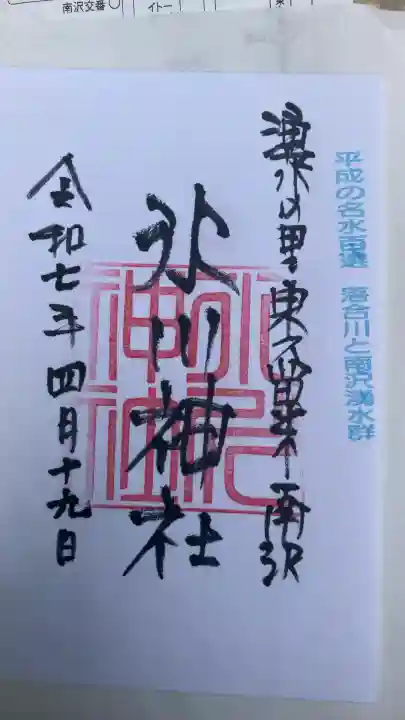 南沢交番
イトー
平成の名水百選 落合川と南沢湧水群
湧水の里東久留米南沢
氷川神社
令和七年四月十九日